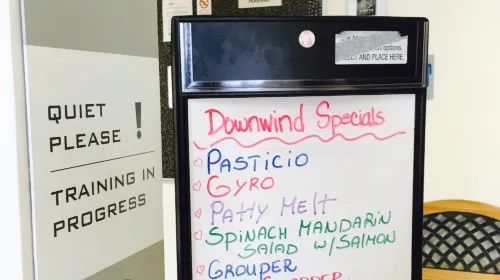 QUIET
PLEASE !
TRAINING IN
PROGRESS
options.
AND PLACE HERE.
Downwind Specials
PASTICIO
GYRO
PATTY MELT
SPINACH MANDARIN
SALAD W/SALMON
GROUPER